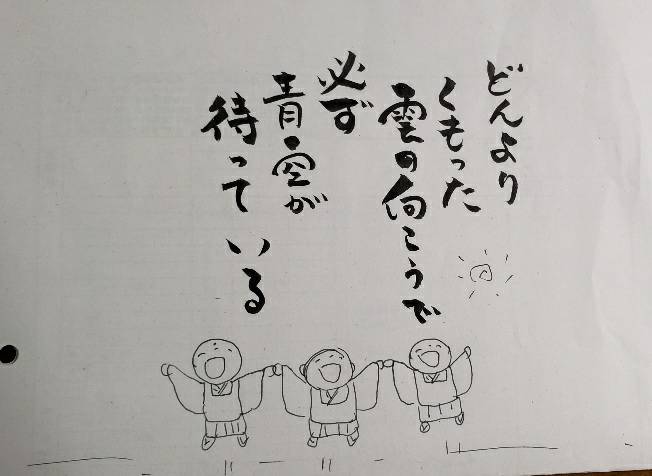 どんより
くもった
雲の向こうで
必ず
青空が
待っている